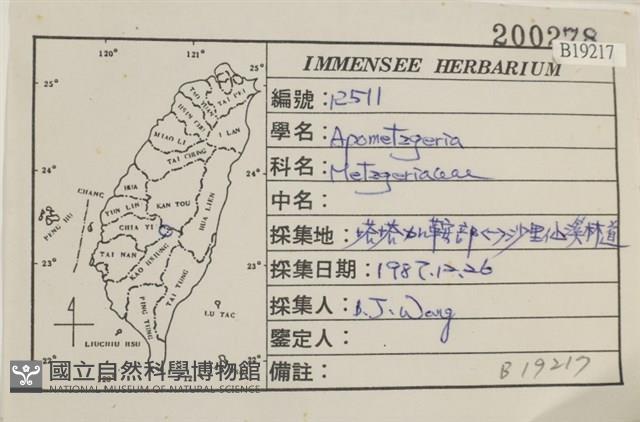 200278
B19217
IMMENSEE HERBARIUM
編號：12511
學名：Apometzgeria
科名：Metzgeriaceae
中名：
採集地：塔塔加鞍部<->沙里仙溪林道
採集日期：1987.12.26
採集人：B.J. Wang
鑒定人：
備註：
B19217
120°
121°
25°
25°
TAO YUAN
TAI PEI
HSIN CHU
I LAN
MIAO LI
TAI CHUNG
24°
24°
CHANG
HUA
NAN TOU
HUA LIEN
YUN LIN
PENG HU
CHIA YI
TAI NAN
KAO HSIUNG
23°
23°
TAI TUNG
PING TUNG
LU TAO
LIUCHIU HSU
22°
22°
120°
國立自然科學博物館
NATIONAL MUSEUM OF NATURAL SCIENCE